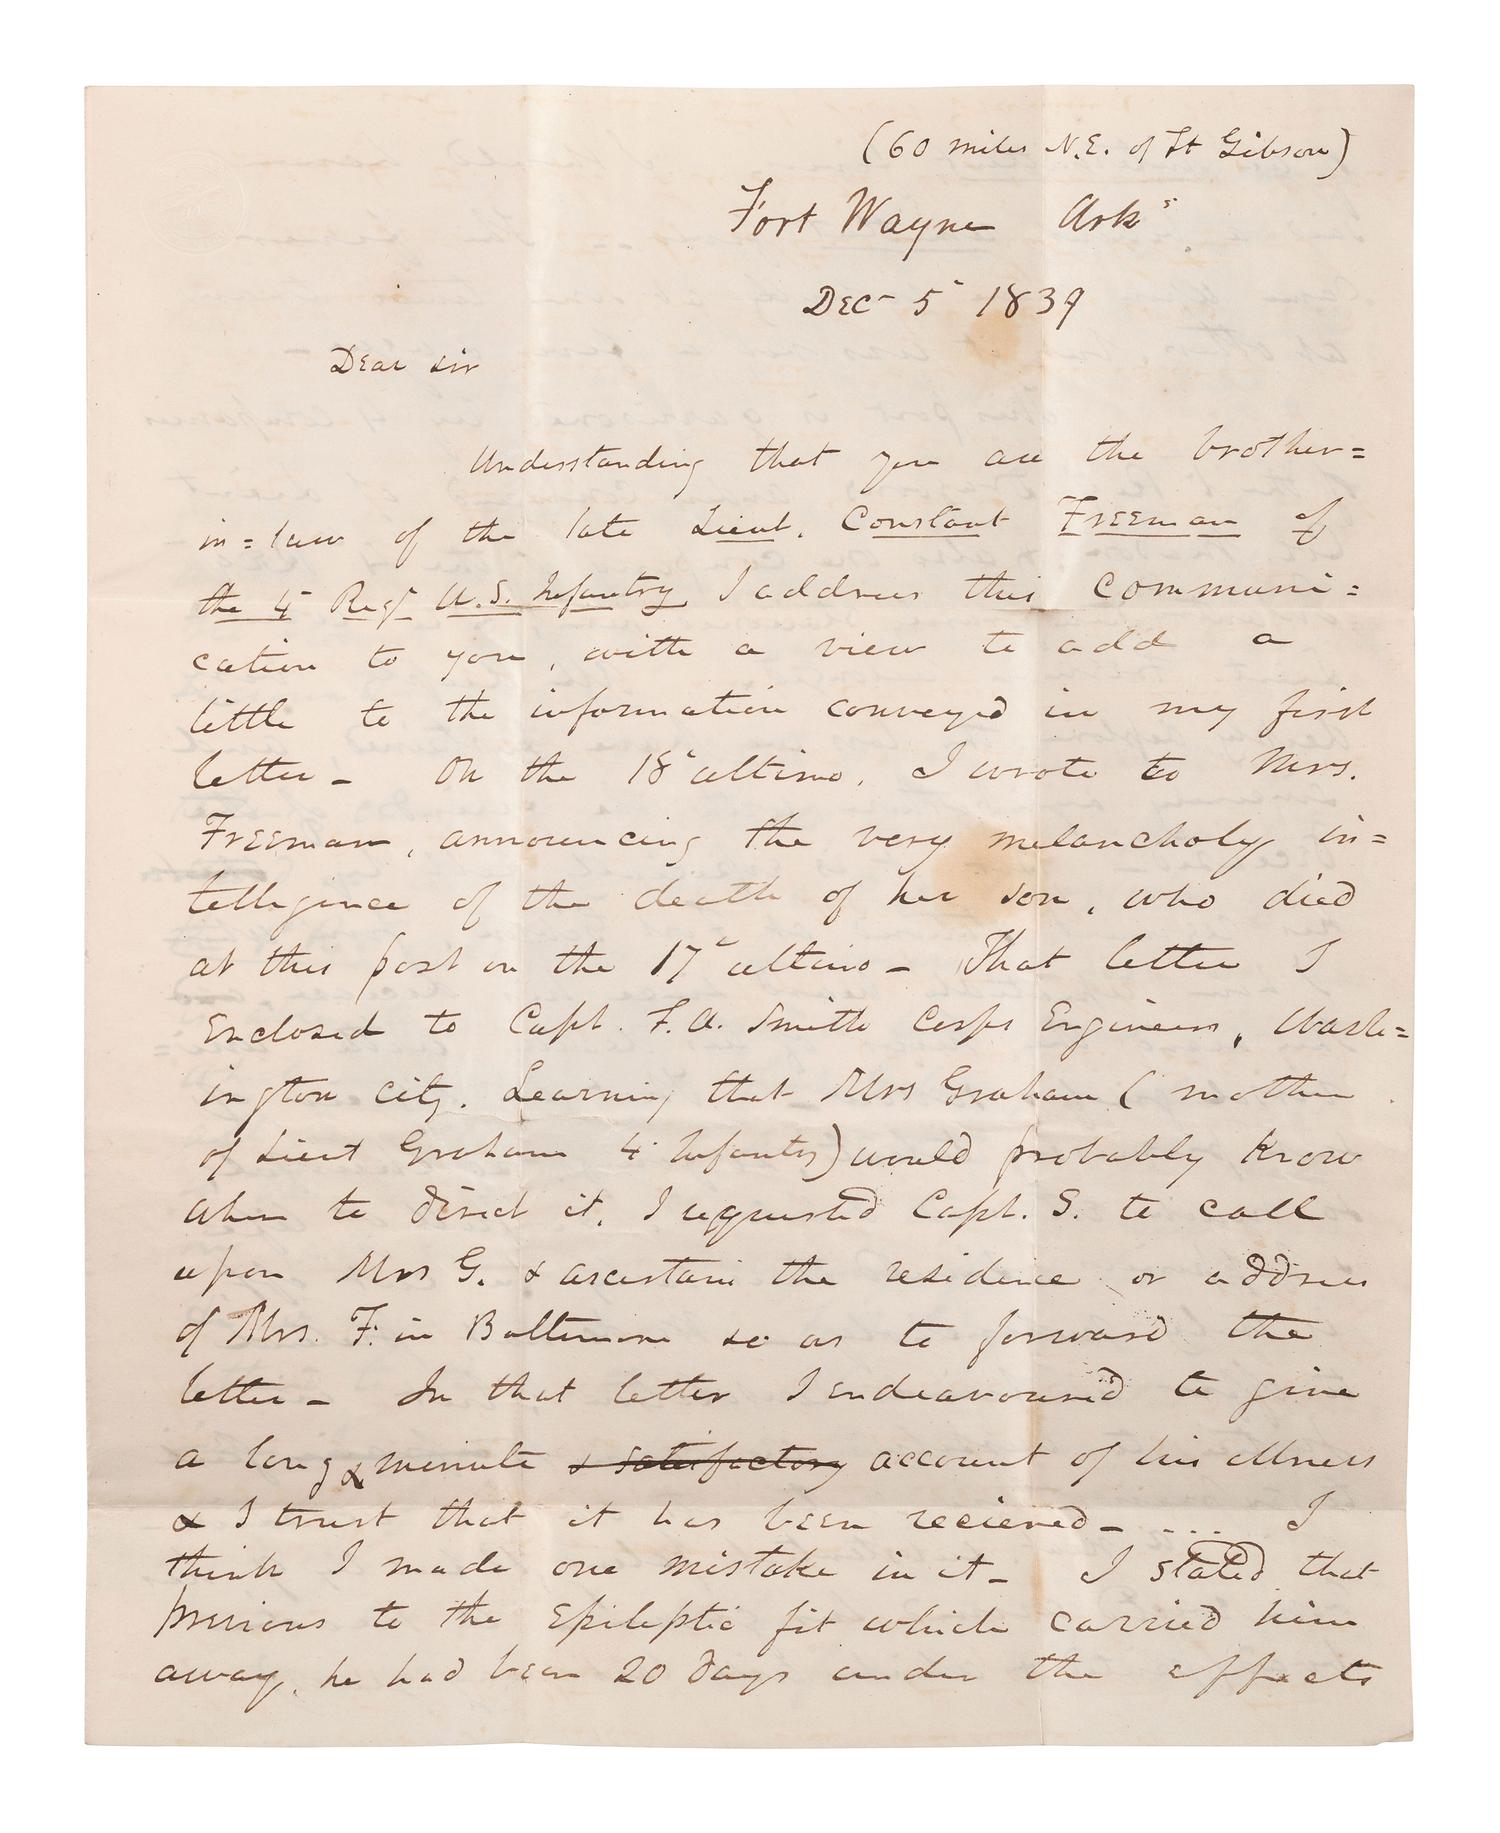 (60 miles N.E. of Ft Gibson)
Fort Wayne Arks
Dec 5 1839
Dear Sir
Understanding that you are the brother=
in=law of the late Lieut. Constant Freeman of
the 4 Regt U.S. Infantry I address this communi=
cation to you, with a view to add a
little to the information conveyed in my first
letter - On the 18 ultimo, I wrote to Mrs.
Freeman, announcing the very melancholy in=
telligence of the death of her son, who died
at this post on the 17 ultimo - That letter I
Enclosed to Capt. F. A. Smith Corps Engineers, Wash=
ington City. Learning that Mrs Graham (mother
of Lieut Graham 4 Infantry) would probably know
where to direct it, I requested Capt. S. to call
upon Mrs G. & ascertain the residence or address
of Mrs. F. in Baltimore so as to forward the
letter - In that letter I endeavoured to give
a long & minute & satisfactory account of his illness
& I trust that it has been recieved - ... I
think I made one mistake in it - I stated that
previous to the Epileptic fit which carried him
away, he had been 20 days under the effects